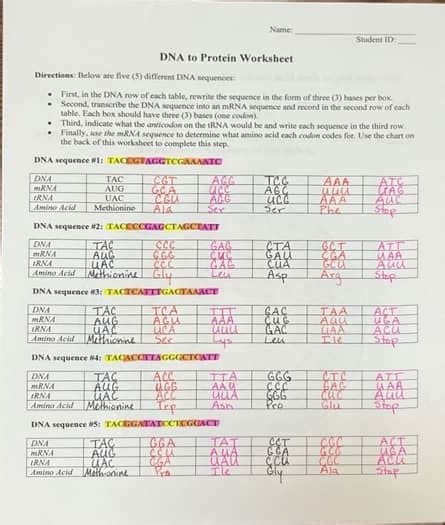 Name:
Student ID:
DNA to Protein Worksheet
Directions: Below are five (5) different DNA sequences:
• First, in the DNA row of each table, rewrite the sequence in the form of three (3) bases per box.
• Second, transcribe the DNA sequence into an mRNA sequence and record in the second row of each
table. Each box should have three (3) bases (one codon).
• Third, indicate what the anticodon on the tRNA would be and write each sequence in the third row.
• Finally, use the mRNA sequence to determine what amino acid each codon codes for. Use the chart on
the back of this worksheet to complete this step.
DNA sequence #1: TACCGTAGGTCGAAAATC
DNA TAC CGT AGG TCG AAA ATC
mRNA AUG GCA UCC AGC UUU UAG
tRNA UAC CGU AGG UCG AAA AUC
Amino Acid Methionine Ala Ser Ser Phe Stop
DNA sequence #2: TACCCCGAGCTAGCTATT
DNA TAC CCC GAG CTA GCT ATT
mRNA AUG GGG CUC GAU CGA UAA
tRNA UAC CCC GAG CUA GCU AUU
Amino Acid Methionine Gly Leu Asp Arg Stop
DNA sequence #3: TACTCATTTGACTAAACT
DNA TAC TCA TTT GAC TAA ACT
mRNA AUG AGU AAA CUG AUU UGA
tRNA UAC UCA UUU GAC UAA ACU
Amino Acid Methionine Ser Lys Leu Ile Stop
DNA sequence #4: TACACCTTAGGGCTCATT
DNA TAC ACC TTA GGG CTC ATT
mRNA AUG UGG AAU CCC GAG UAA
tRNA UAC ACC UUA GGG CUC AUU
Amino Acid Methionine Trp Asn Pro Glu Stop
DNA sequence #5:
DNA TAC GGA TAT CCT ACT
mRNA AUG CCU AUA GGA UGA
tRNA UAC GGA UAU CCU ACU
Amino Acid Methionine Pro Ile Gly Ala Stop